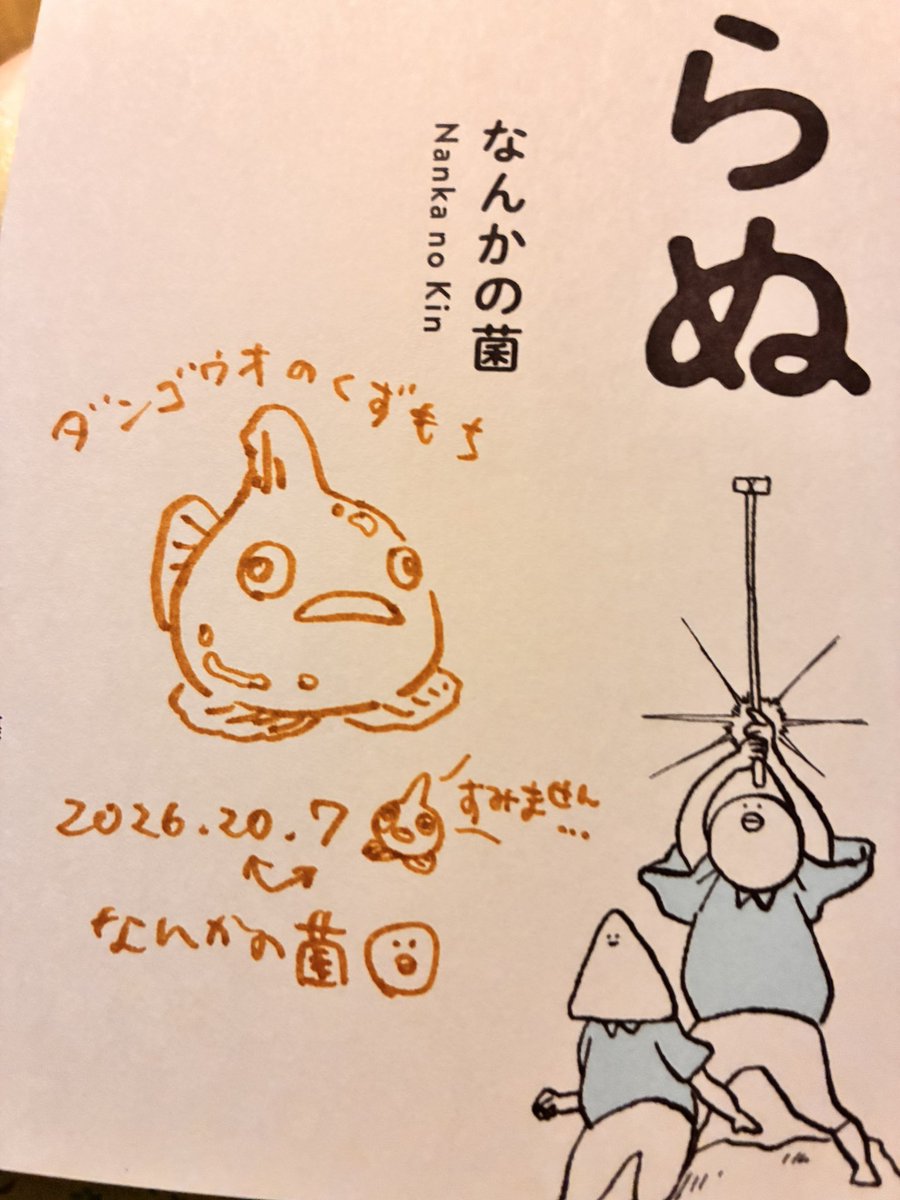 らぬ
なんかの菌
Nanka no Kin
ダンゴウオのくずもち
2026.20.7
すみません…
なんかの菌